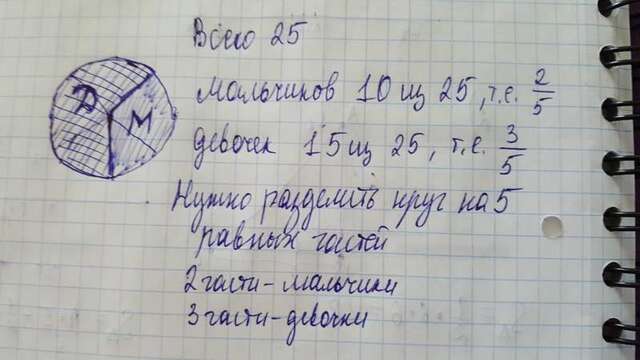 Всего 25
Д
М
мальчиков 10 из 25, т.е. 2/5
девочек 15 из 25, т.е. 3/5
Нужно разделить круг на 5
равных частей
2 части - мальчики
3 части - девочки